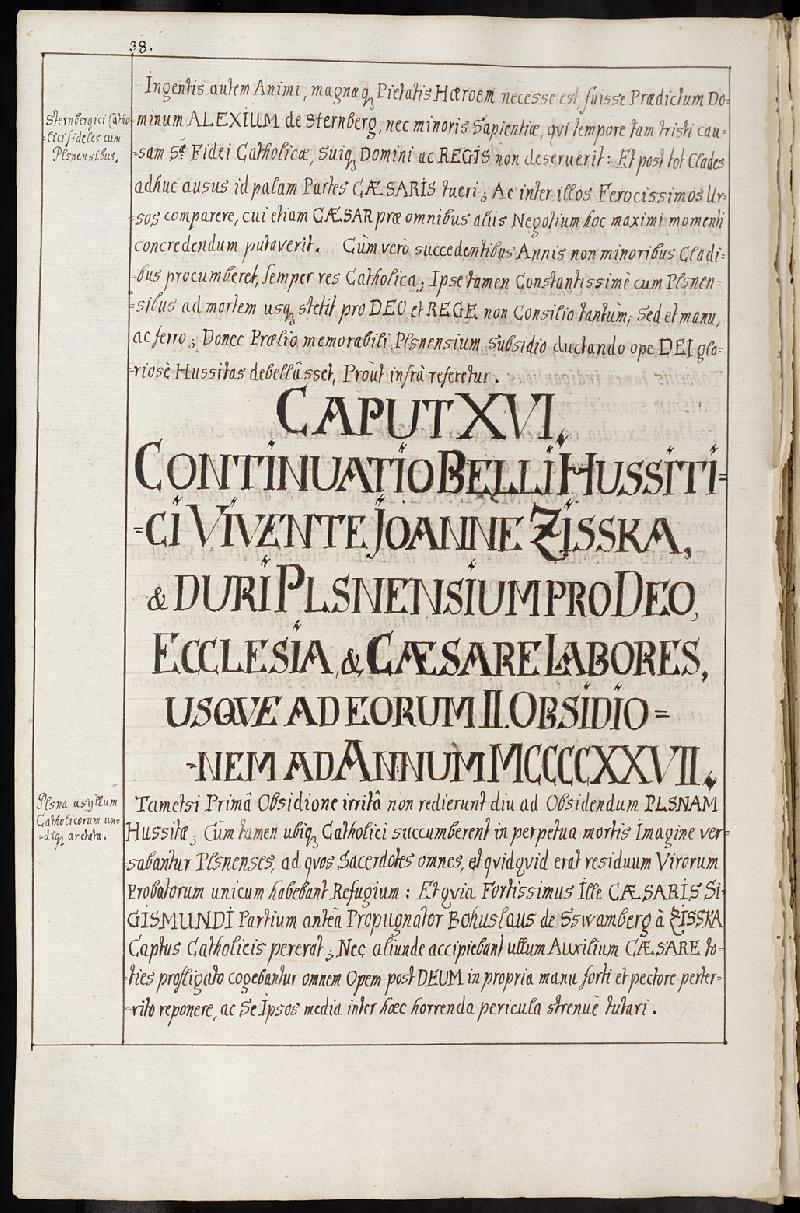 38.
Sternbergici Catho-
-lici fideles cum
Plsnensibus.
Ingentis autem Animi, magnaq; Pietatis Hæroem necesse est fuisse Prædictum Do-
-minum ALEXIUM de Sternberg, nec minoris Sapientiæ, qvi tempore tam tristi cau-
-sam Sæ Fidei Catholicæ, Suiq; Domini ac REGIS non deseruerit: Et post tot Clades
adhuc ausus id palam Partes CÆSARIS tueri; Ac inter illos Ferocissimos Ur-
-sos comparere, cui etiam CÆSAR præ omnibus aliis Negotium hoc maximi momenti
concredendum putaverit. Cùm verò succedentibus Annis non minoribus Cladi-
-bus procumberet, semper res Catholica; Ipse tamen Constantissimè cum Plsnen-
-sibus ad mortem usq; stetit pro DEO et REGE non Consilio tantùm; Sed et manu,
ac ferro; Donec Prælio memorabili Plsnensium subsidio ductando ope DEI glo-
-riosè Hussitas debellâsset, Proùt infrà referetur.
CAPUT XVI.
CONTINUATIO BELLI HUSSITI=
=CI VIVENTE JOANNE ZISSKA,
& DURI PLSNENSIUM PRO DEO,
ECCLESIA, & CÆSARE LABORES,
USQVE AD EORUM II. OBSIDIO=
-NEM AD ANNUM MCCCCXXVII.
Plsna asyllum
Catholicorum un-
-diq; arctata.
Tametsi Primâ Obsidione irritâ non redierunt diu ad Obsidendum PLSNAM
Hussitæ; Cùm tamen ubiq; Catholici succumberent in perpetua mortis Imagine ver-
-sabantur Plsnenses, ad qvos Sacerdotes omnes, et qvidqvid erat residuum Virorum
Probatorum unicum habebant Refugium: Et qvia Fortissimus ille CÆSARIS SI-
GISMUNDI Partium anteà Propugnator Bohuslaus de Sswamberg à ZISSKA
Captus Catholicis pererat; Nec aliunde accipiebant ullum Auxilium CÆSARE to-
-ties profligato cogebantur omnem Opem post DEUM in propria manu forti et pectore perter-
-rito reponere, ac Se Ipsos media inter hæc horrenda pericula strenuè tutari.